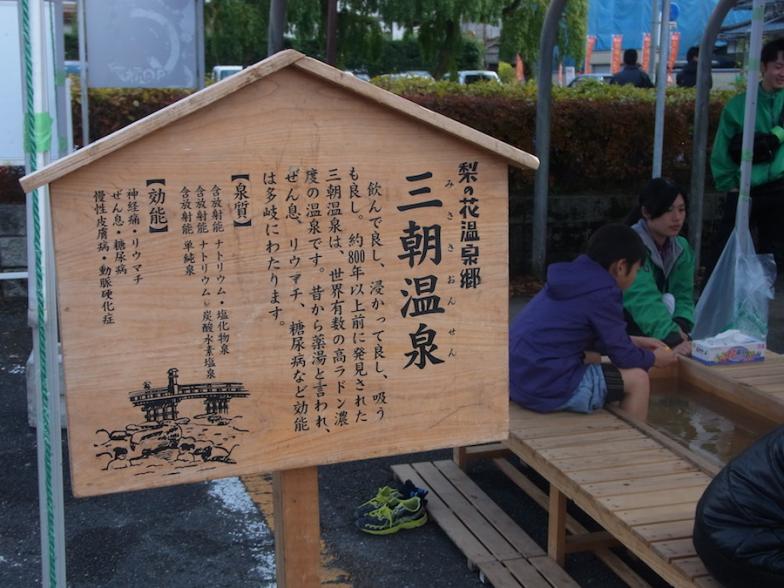 梨の花温泉郷
三朝温泉
みささおんせん
飲んで良し、浸かって良し、吸う
も良し。約800年以上前に発見された
三朝温泉は、世界有数の高ラドン濃
度の温泉です。昔から薬湯と言われ、
ぜん息、リウマチ、糖尿病など効能
は多岐にわたります。
【泉質】
含放射能 ナトリウム・塩化物泉
含放射能 ナトリウム・炭酸水素塩泉
含放射能 単純泉
【効能】
神経痛・リウマチ
ぜん息・糖尿病
慢性皮膚病・動脈硬化症